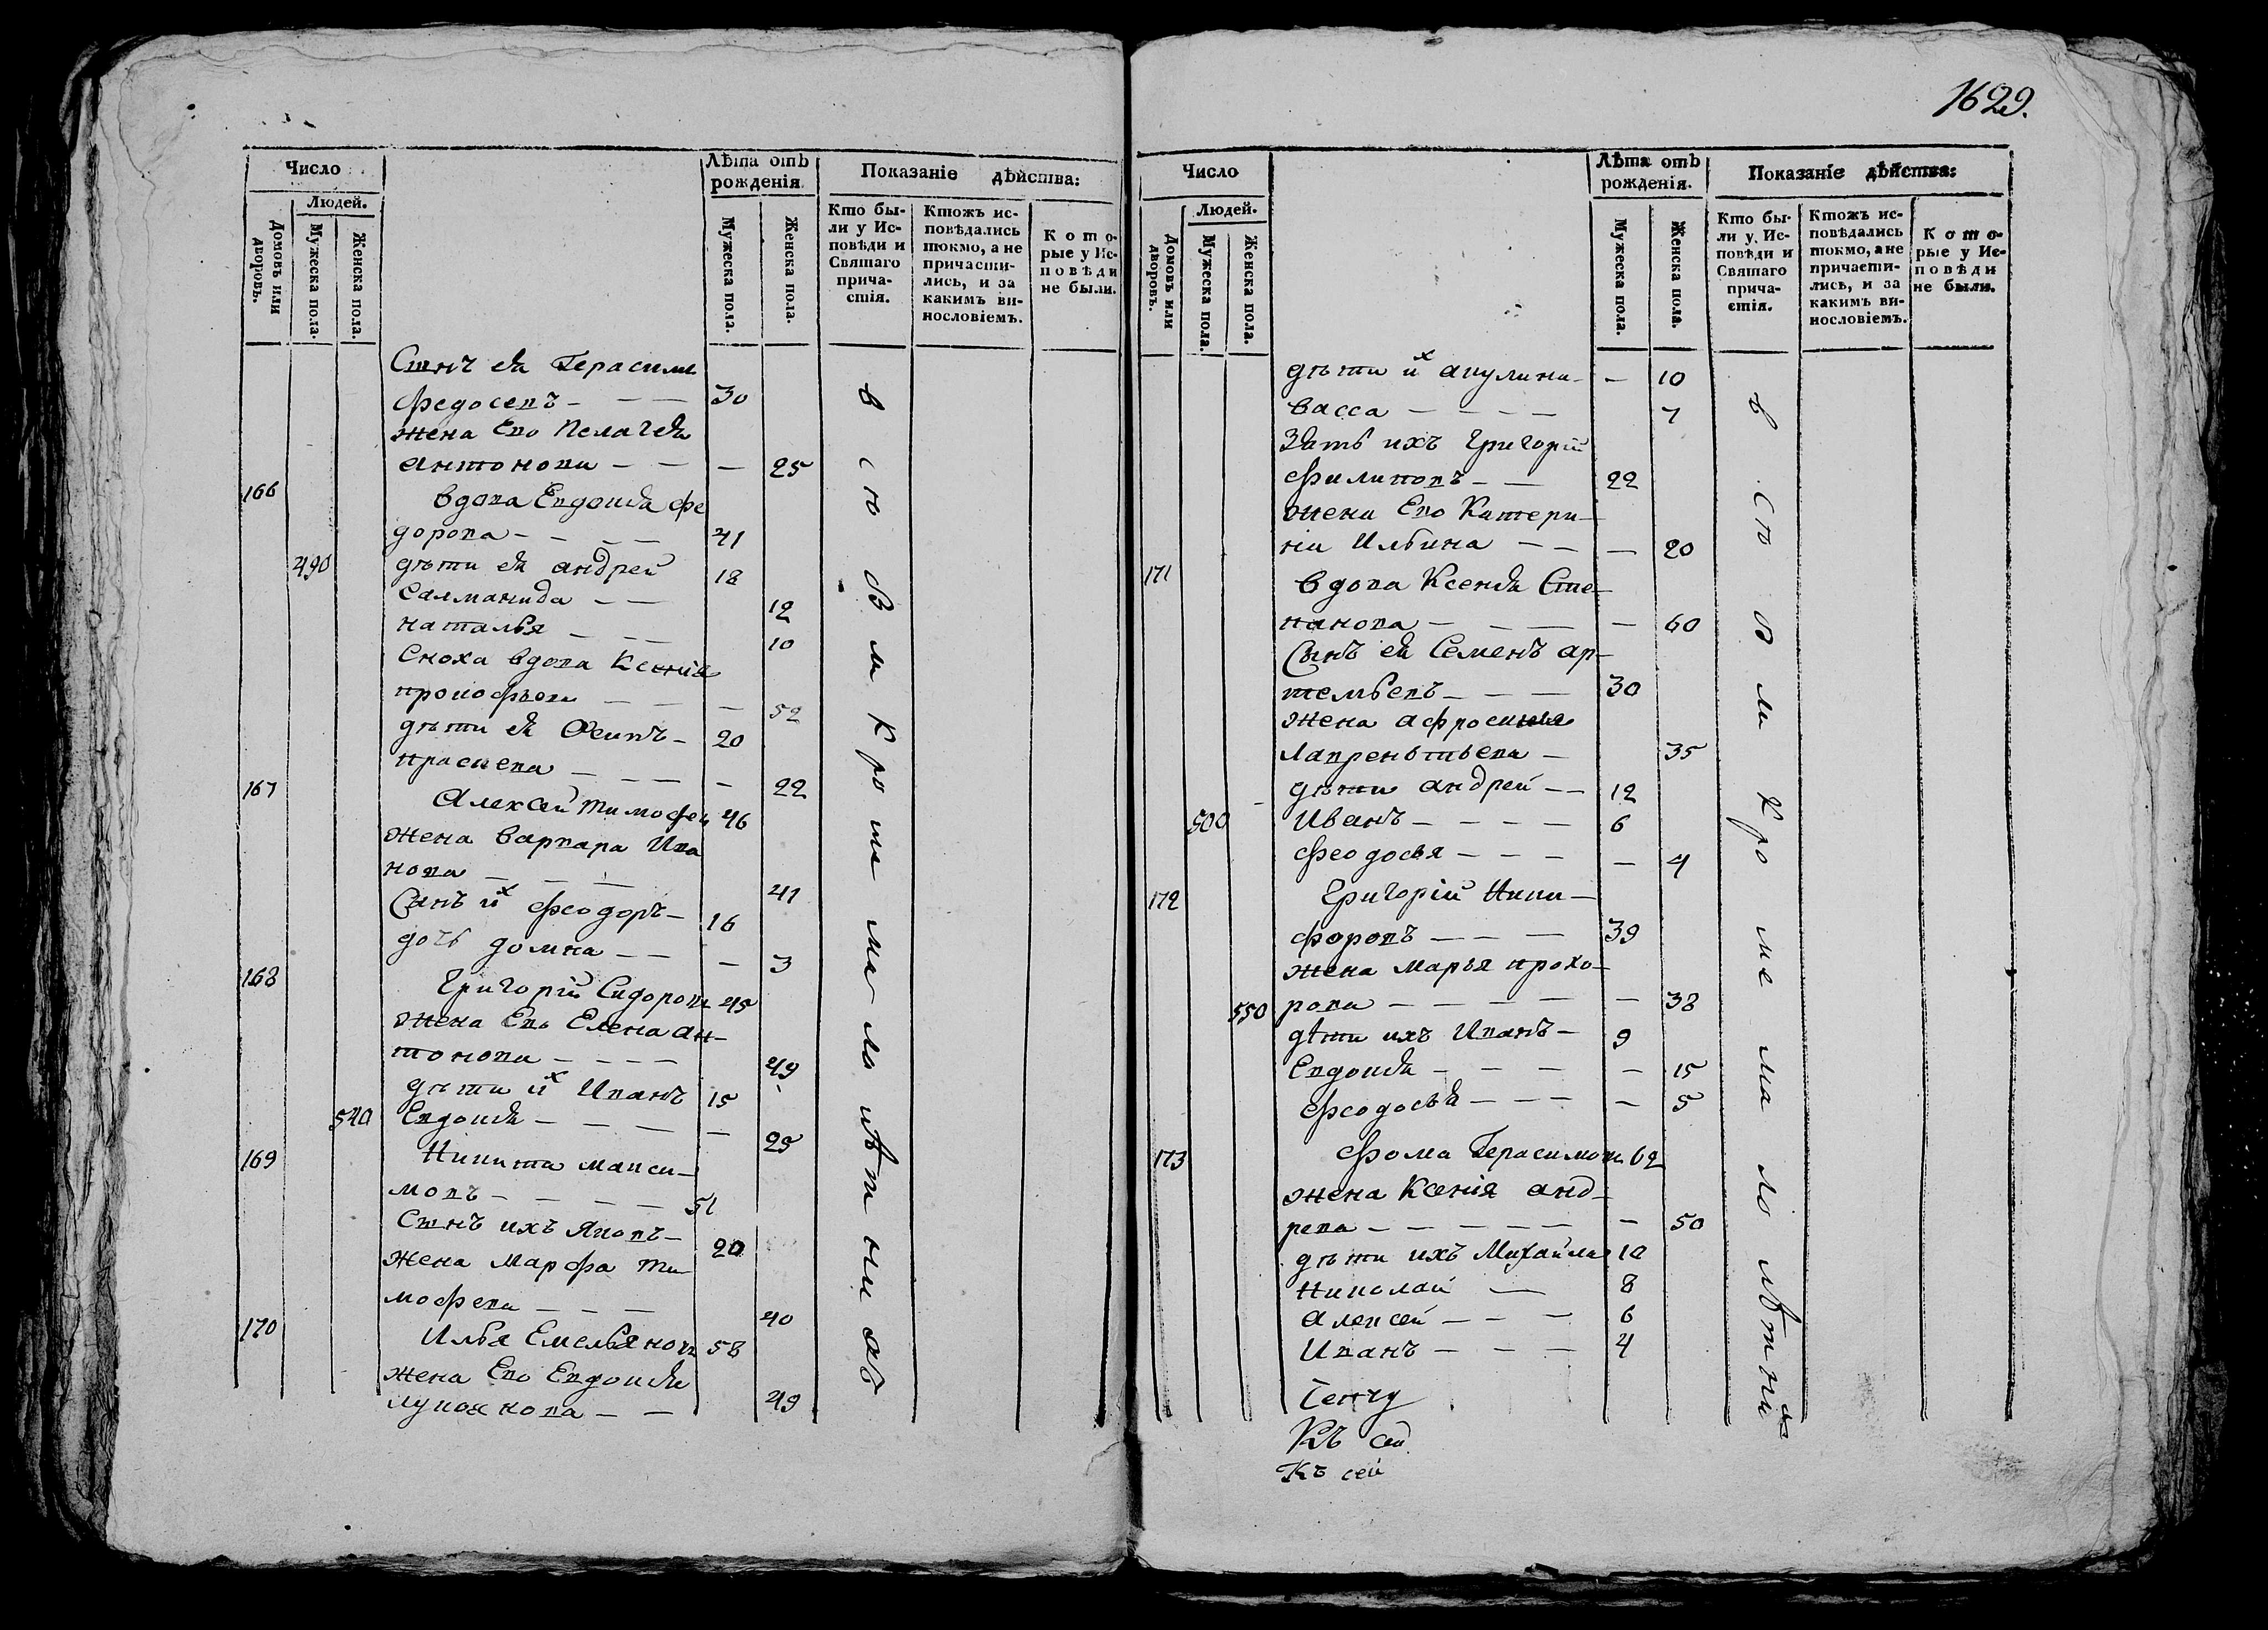 1629.
Число
Людей.
Домовъ или дворовъ.
Мужеска пола.
Женска пола.
Лѣта отъ рожденія.
Мужеска пола.
Женска пола.
Показаніе дѣйства:
Кто бы-
ли у Ис-
повѣди и
Святаго
прича-
стія.
Ктожъ ис-
повѣдались
токмо, а не
причасти-
лись, и за
какимъ ви-
нословіемъ.
Кото-
рые у Ис-
повѣди
не были.
Сынъ ея Герасимъ
Федосевъ - - - 30
жена Ево Пелагея
антонова - - - 25
166
вдова Евдокия фе
дорова - - - - 41
490 дѣти ея андрей 18
Саламанида - - 12
наталья - - - 10
Сноха вдова Ксения
прокофьева - - - 52
дѣти ея Осипъ - 20
прасковя - - - - 22
167
Алексей тимофеи 46
жена варвара Ива
нова - - - 41
Сынъ их феодоръ - 16
дочь домна - - - 3
168
Григорій Сидоровъ 45
жена Ево Елена ан-
тонова - - - - 49
дѣти их Иванъ 15
540 Евдокия - - - - - 25
169
Никита макси-
мовъ - - - - 51
Сынъ ихъ Яковъ - 20
жена марфа ти-
мофева - - - 40
170
Илья Емельяновъ 58
жена Ево Евдокия
лукоянова - - 49
всю Вмкроме малолѣтнихъ
Число
Людей.
Домовъ или дворовъ.
Мужеска пола.
Женска пола.
Лѣта отъ рожденія.
Мужеска пола.
Женска пола.
Показаніе дѣйства:
Кто бы-
ли у Ис-
повѣди и
Святаго
прича-
стія.
Ктожъ ис-
повѣдались
токмо, а не
причасти-
лись, и за
какимъ ви-
нословіемъ.
Кото-
рые у Ис-
повѣди
не были.
дѣти их акулина - - 10
васса - - - - 7
Зять ихъ Григорій
филиповъ - - 22
жена Ево Катери-
на Ильина - - - 20
171
вдова Ксения Сте-
панова - - - - 60
Сынъ ея Семенъ ар-
темьевъ - - - 30
жена афросинья
лаврентьева - 35
дѣти андрей - - 12
500 Иванъ - - - - 6
феодосья - - - - 4
172
Григорій Ники-
форовъ - - - 39
жена марья прохо-
550 рова - - - - - 38
дѣти ихъ Иванъ - 9
Евдокия - - - - - 15
феодосья - - - - 5
173
Фома Герасимовъ 62
жена Ксенія анд-
рева - - - - - - 50
дѣти ихъ Михайла 10
николай - 8
алексей - - - 6
Иванъ - - - 4
Къ сей
Къ сей
кроме малолѣтних